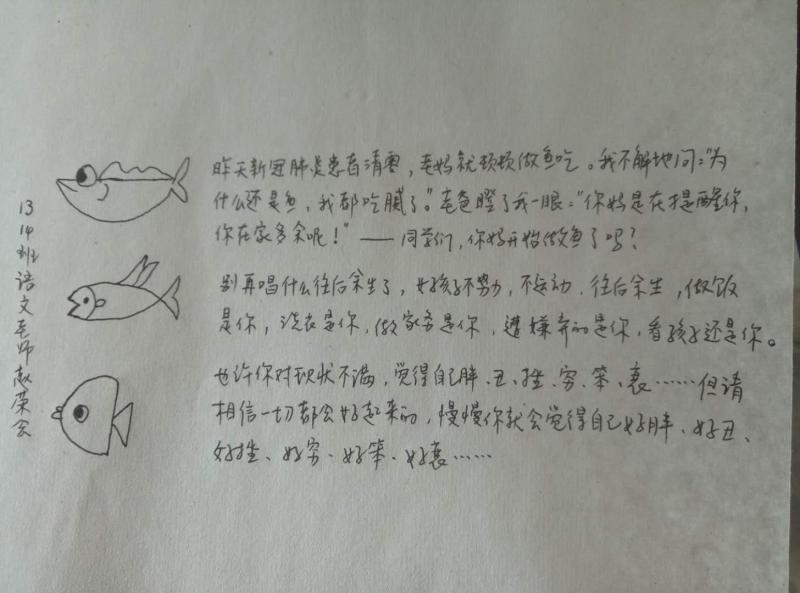 13
14班语文老师赵荣会
昨天新冠肺炎患者清零，老妈就顿顿做鱼吃。我不解地问："为
什么还是鱼，我都吃腻了。"老爸瞪了我一眼："你妈是在提醒你，
你在家多余呢！"——同学们，你妈开始做鱼了吗？
别再唱什么往后余生了，女孩子不努力，不运动，往后余生，做饭
是你，洗衣是你，做家务是你，遭嫌弃的是你，看孩子还是你。
也许你对现状不满，觉得自己胖、丑、挫、穷、笨、衰……但请
相信一切都会好起来的，慢慢你就会觉得自己好胖、好丑、
好挫、好穷、好笨、好衰……